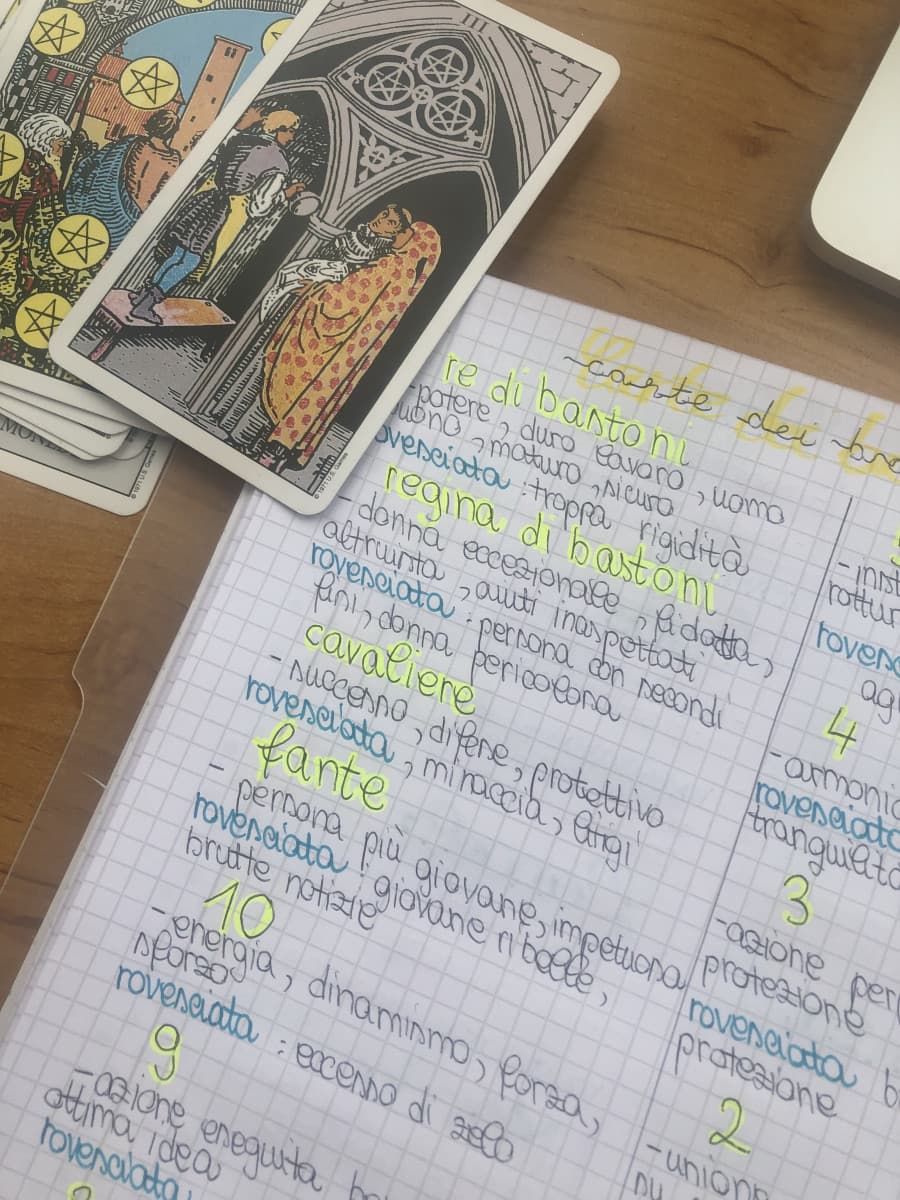 III
© 1971 U.S. Games
© 1971 U.S. Games
carte dei
re di bastoni
- potere, duro lavoro, uomo
buono, maturo, sicuro
rovesciata: troppa rigidità
regina di bastoni
- donna eccezionale, fidata,
altruista, aiuti inaspettati
rovesciata: persona con secondi
fini, donna pericolosa
cavaliere
- successo, difese, protettivo
rovesciata, minaccia, litigi
fante
- persona più giovane, impetuosa
rovesciata: giovane ribelle,
brutte notizie
10
- energia, dinamismo, forza,
sforzo
rovesciata: eccesso di zelo
9
- azione eseguita
ottima idea
rovesciata
rottur
4
- armonic
rovesciata
3
- azione
protezione
rovesciata
protezione
2
- union